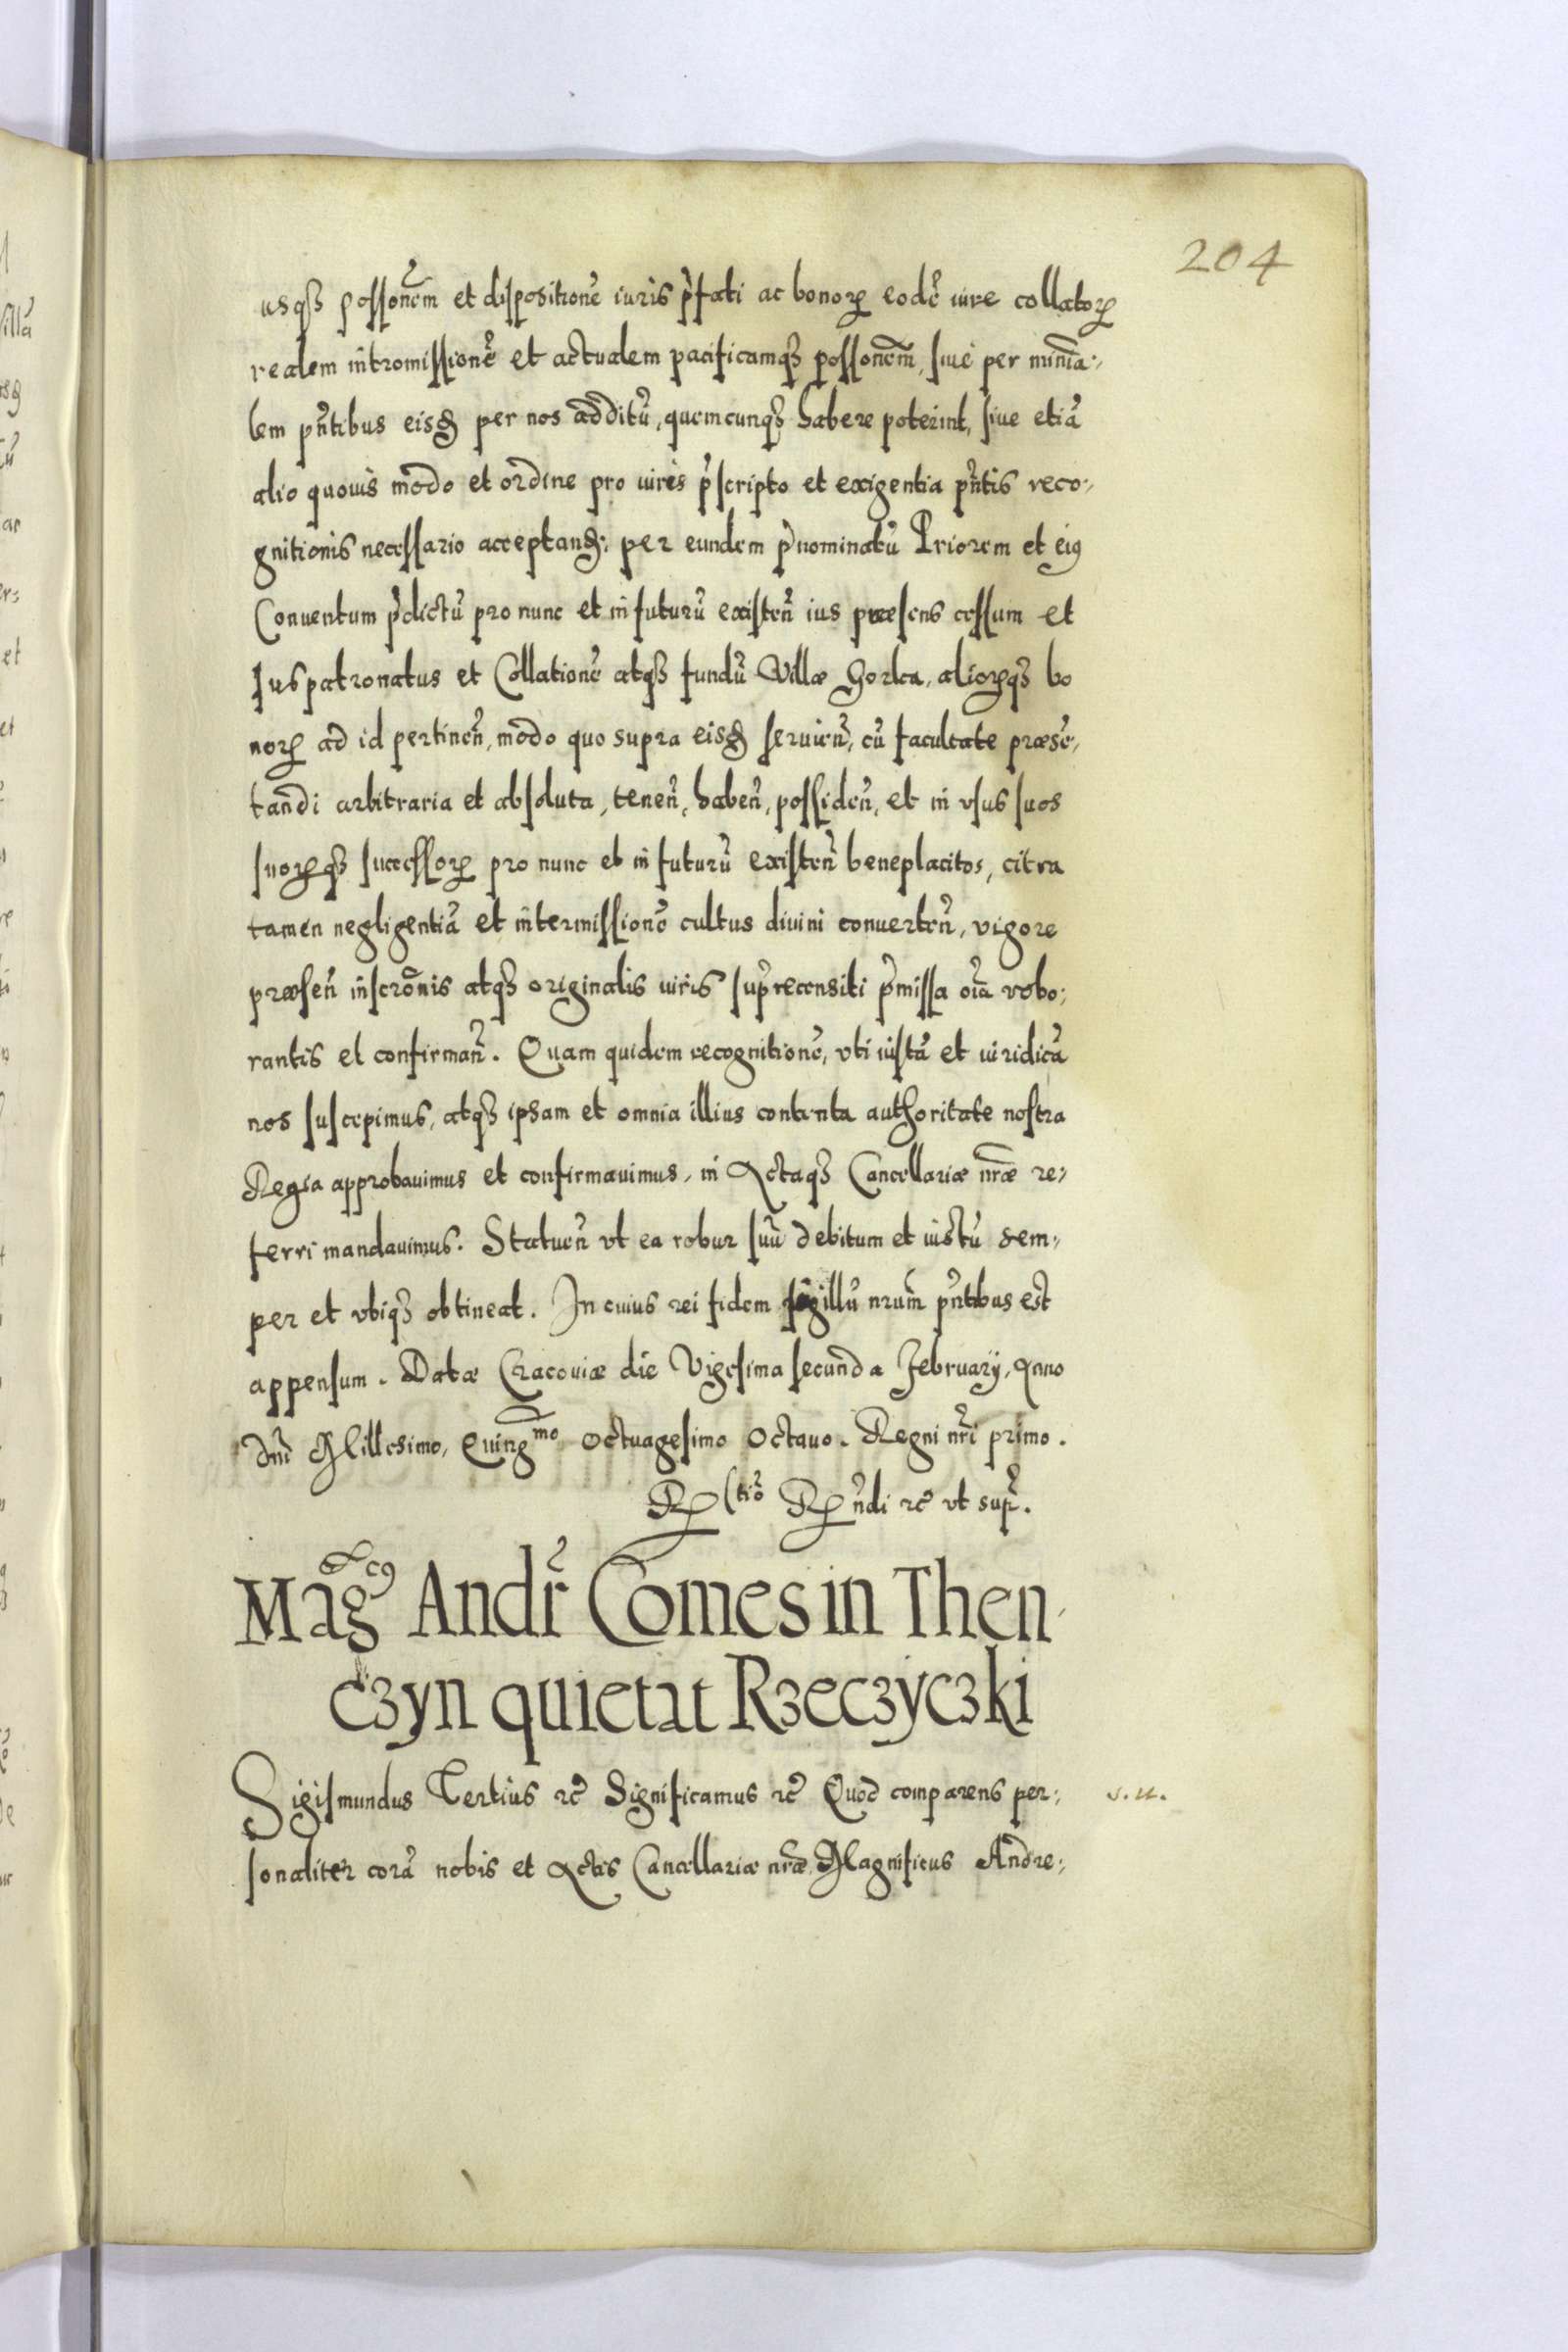 204
usqȝ possonem et dispositionē iuris p̄fati ac bonoꝝ eodē iure collatoꝝ
realem intromissionē et actualem pacificamqȝ possonem, siue per minra-
lem pñtibus eisd per nos additū, quemcunqȝ habere poterint, siue etiā
alio quouis modo et ordine pro iuris p̄scripto et exigentia pñtis reco-
gnitionis necessario acceptand: per eundem p̄nominatū Priorem et eiꝰ
Conuentum p̄dictū pro nunc et in futurū existeñ ius præsens cessum et
Iuspatronatus et Collationē atqȝ fundū Villæ Gorka, alioꝝqȝ bo
noꝝ ad id pertineñ, modo quo supra eisd seruieñ, cū facultate præsē-
tandi arbitraria et absoluta, teneñ, habeñ, possideñ, et in vsus suos
suoꝝqȝ successoꝝ pro nunc et in futurū existeñ beneplacitos, citra
tamen negligentiā et intermissionē cultus diuini conuerteñ, vigore
præseñ inscrōnis atqȝ originalis iuris sup̄recensiti p̄missa oīa robo-
rantis et confirmañ. Quam quidem recognitionē, vti iustā et iuridicā
nos suscepimus, atqȝ ipsam et omnia illius contenta authoritate nostra
Regia approbauimus et confirmauimus, in Actaqȝ Cancellariæ nræ re-
ferri mandauimus. Statueñ vt ea robur suū debitum et iustū sem-
per et vbiqȝ obtineat. In cuius rei fidem sigillū nrum pñtibus est
appensum. Datæ Cracouiæ die Vigesima secunda February, Anno
dñi Millesimo, Quing^mo octuagesimo octauo. Regni nri primo.
Rꝑ(tio Rꝑndi rc̄ vt sup̄.
Mag^cꝰ Andr̄ Comes in Then-
czyn quietat Rzeczyczki
Sigismundus Tertius rc̄ Significamus rc̄ Quod comparens per- s. u.
sonaliter corā nobis et Actis Cancellariæ nræ Magnificus Andre-